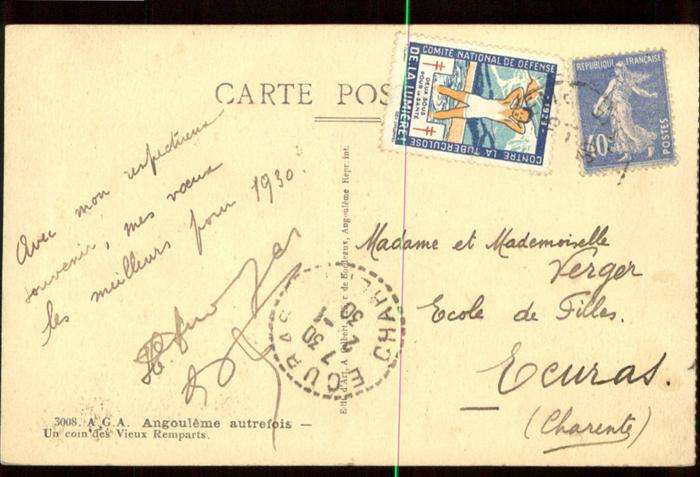 CARTE POS
COMITÉ NATIONAL DE DÉFENSE
CONTRE LA TUBERCULOSE
DE LA LUMIÈRE!
DEUX SOUS
POUR LA SANTÉ
RÉPUBLIQUE FRANÇAISE
40
POSTES
Avec mon respectueux
souvenir, mes vœux
les meilleurs pour 1930.
Madame et Mademoiselle
Verger
Ecole de Filles.
Ecuras.
(Charente)
ECURAS
7 30
2 - 1
30
CHARE
Angoulême Repr. int.
3008. A.G.A. Angoulême autrefois —
Un coin des Vieux Remparts.